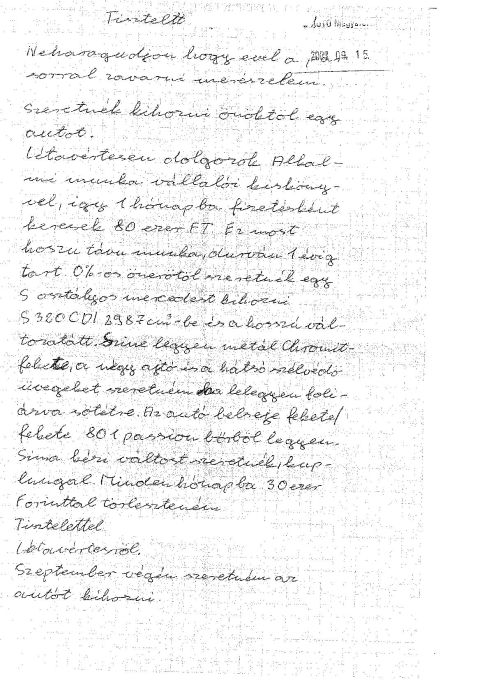 Tisztelt
2008.09.15.
Neharagudjon hogy evel a pár
sorral zavarni merészelem.
Szeretnék kihozni önöktöl egy
autót.
Létavértesen dolgozok Alkal-
mi munka vállalói kisköny-
vel, igy 1 hónapba fizetésként
keresek 80 ezer FT. Ez most
hoszu távu munka, durván 1 évig
tart. 0%-os önerötöl szeretnék egy
S osztályos mercedest kihozni
S 320 CDI 2987cm³-be és a hosszú vál-
tozatátt. Szine legyen metál Chromit-
fekete, a négy ajtó és a hátsó szélvédö
üvegeket szeretném ha lelegyen foli-
ázva sötétre. Az autó belseje fekete/
fekete 801 passion börböl legyen.
Sima kézi váltóst szeretnék, kup-
lungal. Minden hónapba 30 ezer
Forinttal törleszteném
Tisztelettel
Létavértesröl.
Szeptember végén szeretném az
autót kihozni.